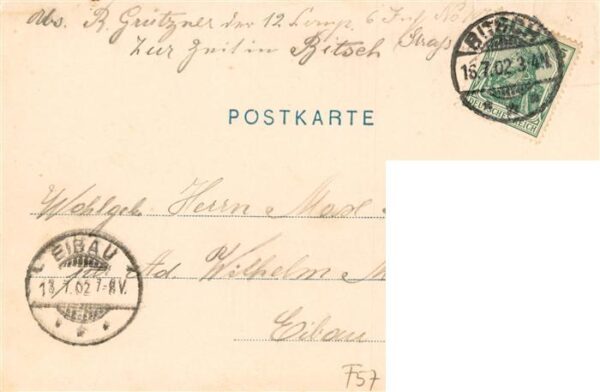 Abs. R. Grützner der 12. Comp. 6 Inf.
zur Zeit in Bitsch
BITSCH
16.7.02.3-4N.
DEUTSCHES REICH
POSTKARTE
Wohlgeb. Herrn Max
Ad. Wilhelm M
EIBAU
13.7.02 7-8V.
Eibau
F57